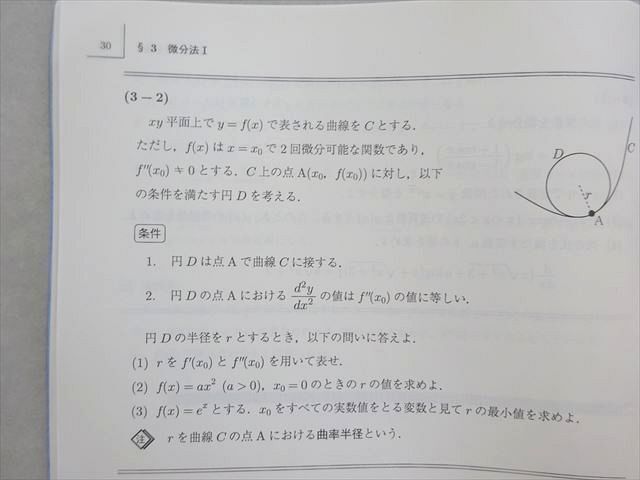 30 § 3 微分法 I
(3－2)
xy 平面上で y = f(x) で表される曲線を C とする.
ただし, f(x) は x = x₀ で 2 回微分可能な関数であり,
f''(x₀) ≠ 0 とする. C 上の点 A(x₀, f(x₀)) に対し, 以下
の条件を満たす円 D を考える.
D
C
r
A
条件
1. 円 D は点 A で曲線 C に接する.
2. 円 D の点 A における d²y/dx² の値は f''(x₀) の値に等しい.
円 D の半径を r とするとき, 以下の問いに答えよ.
(1) r を f'(x₀) と f''(x₀) を用いて表せ.
(2) f(x) = ax² (a > 0), x₀ = 0 のときの r の値を求めよ.
(3) f(x) = eˣ とする. x₀ をすべての実数値をとる変数と見て r の最小値を求めよ.
注 r を曲線 C の点 A における曲率半径という.